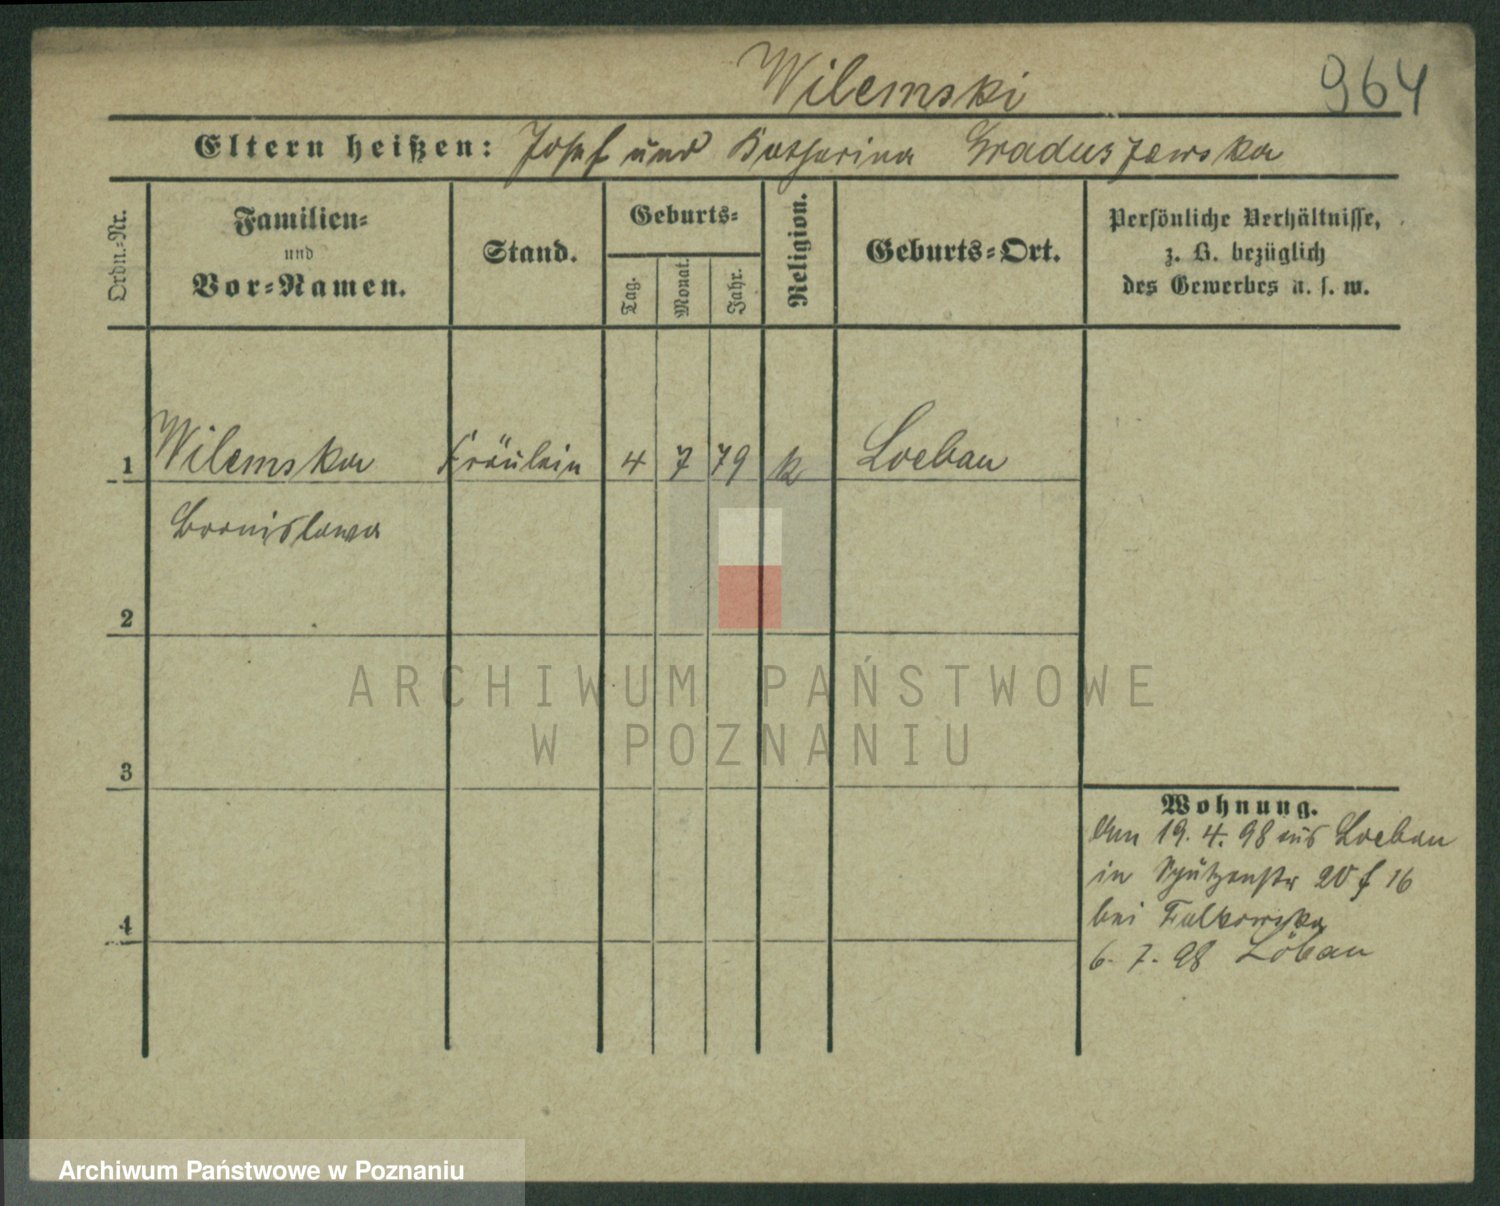 Wilemski 964
Eltern heißen: Josef und Katharina Graduszewska
Ordn.=Nr.
Familien=
und
Vor=Namen.
Stand.
Geburts=
Tag.
Monat.
Jahr.
Religion.
Geburts=Ort.
Persönliche Verhältnisse,
z. B. bezüglich
des Gewerbes u. s. w.
1 Wilemska Fräulein 4 7 79 k Loebau
Bronislawa
2
ARCHIWUM PAŃSTWOWE
W POZNANIU
3
Wohnung.
Am 19. 4. 98 aus Loebau
in Schützenstr 20 16
bei Falkowska
4
6. 7. 98 Löbau
Archiwum Państwowe w Poznaniu